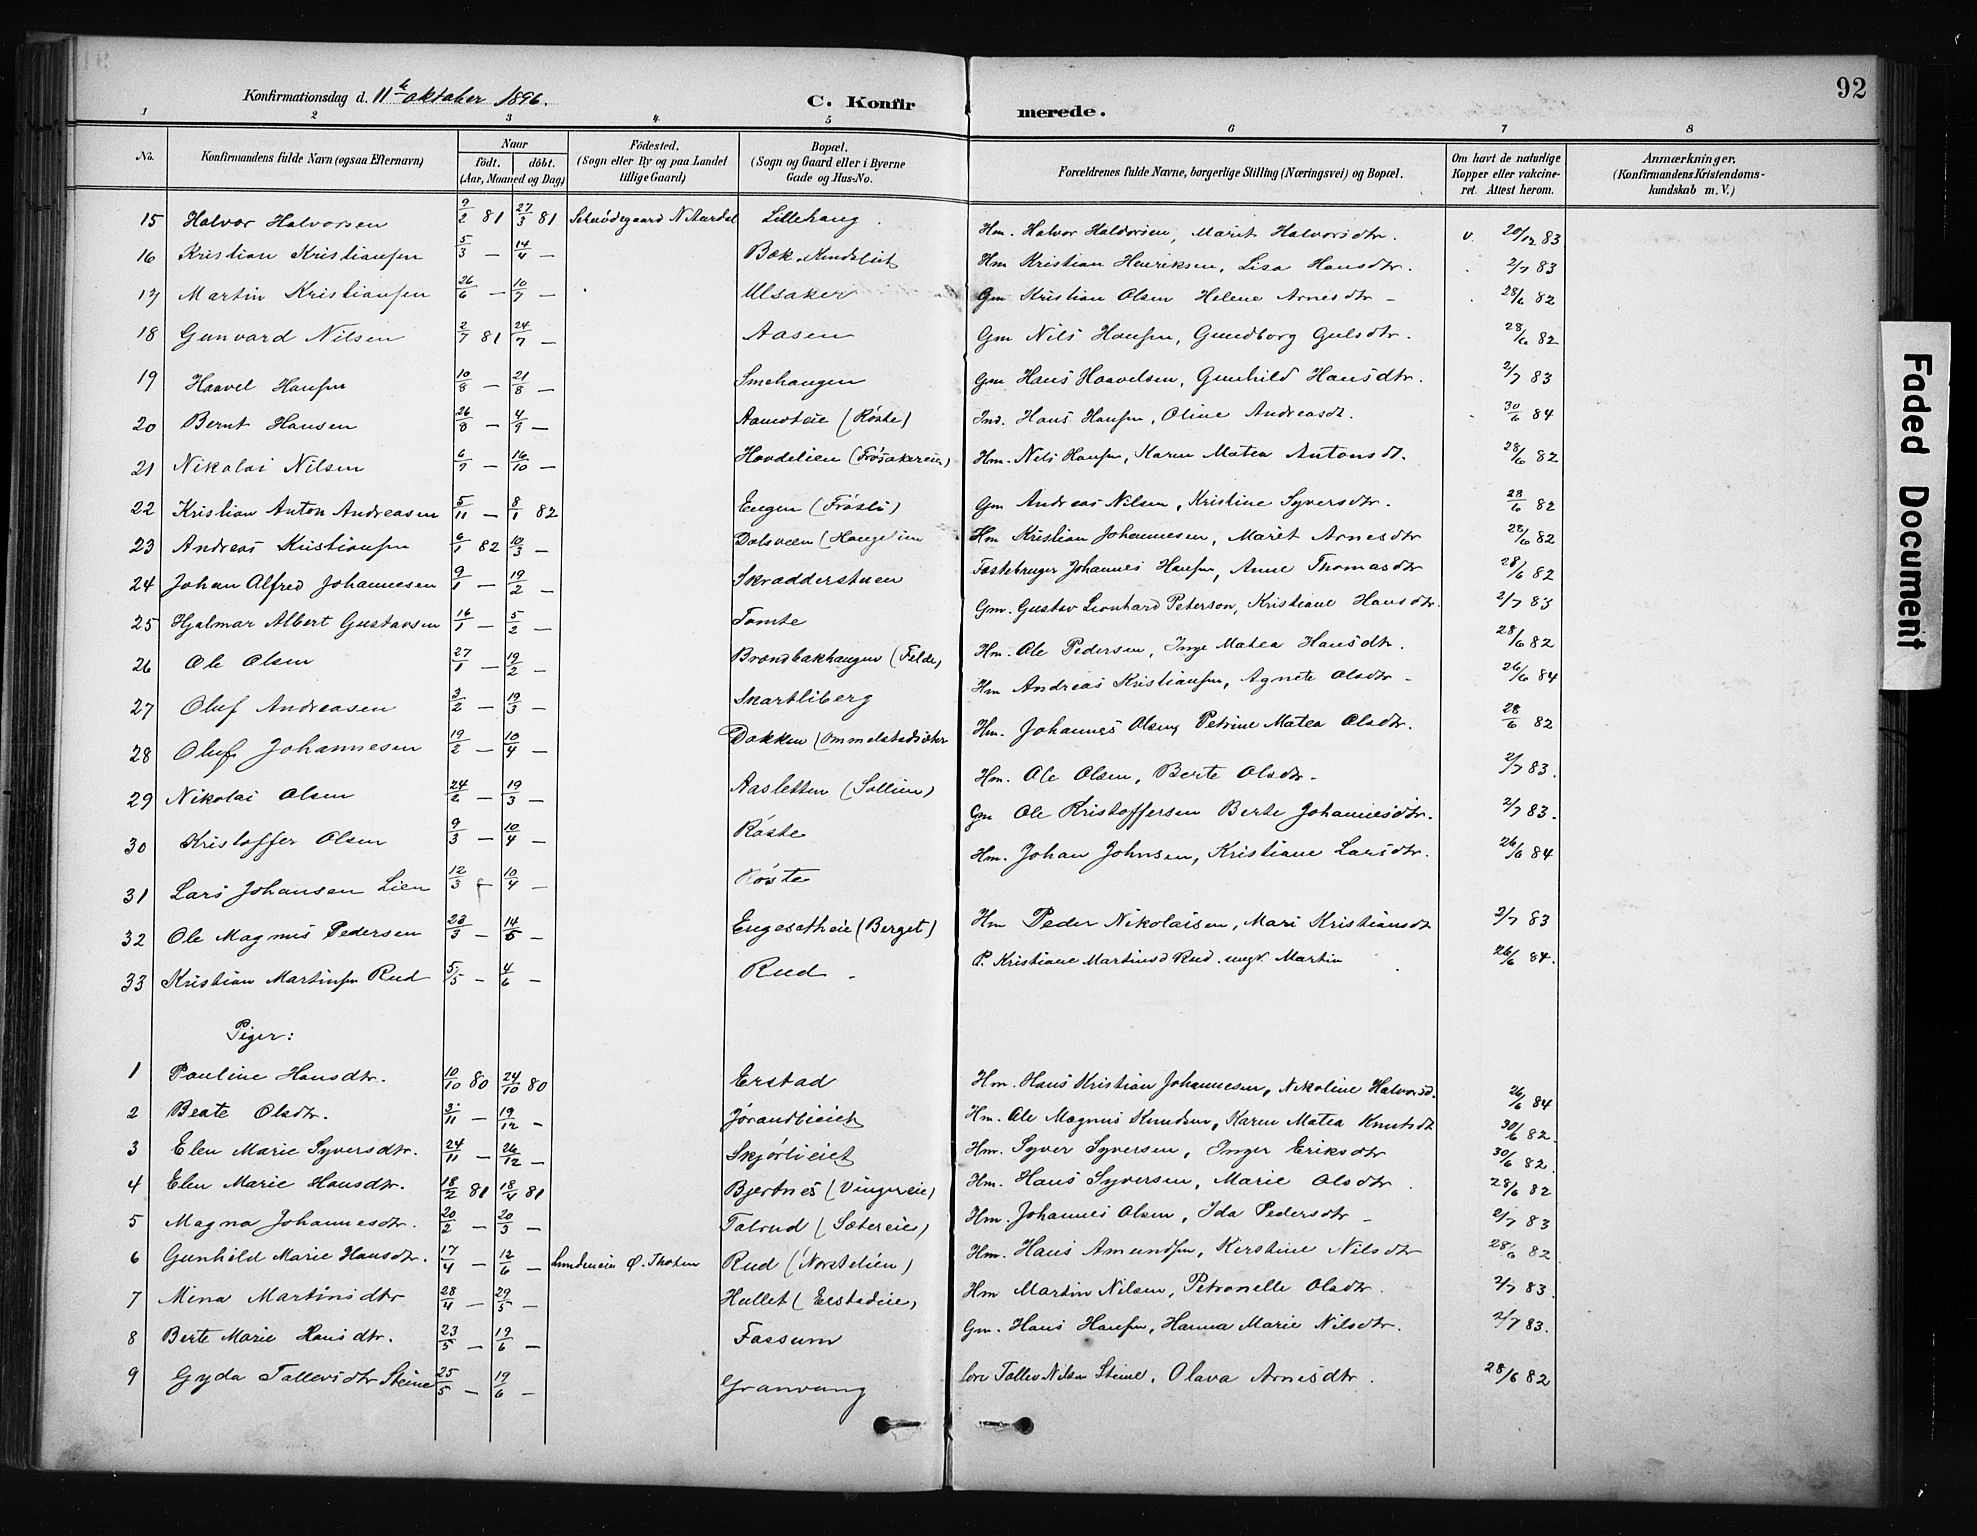 92
Konfirmationsdag d. 11te oktober 1896.
C. Konfirmerede.
1 2 3 4 5 6 7 8
No. Konfirmandens fulde Navn (ogsaa Efternavn) Naar födt. döbt. (Aar, Maaned og Dag) Födested. (Sogn eller By og paa Landet tillige Gaard) Bopæl. (Sogn og Gaard eller i Byerne Gade og Hus-No. Forældrenes fulde Navne, borgerlige Stilling (Næringsvei) og Bopæl. Om havt de naturlige Kopper eller vakcineret. Attest herom. Anmærkninger. (Konfirmandens Kristendomskundskab m. V.)
15 Halvor Halvorsen 9/2 81 27/3 81 N. Aurdal Lillehaug Hm. Halvor Haldorsen, Marit Halvorsdtr. v. 20/12 83
16 Kristian Kristiansen 5/3 — 14/4 — Hm Kristian Henriksen, Lisa Hansdtr. 2/7 83
17 Martin Kristiansen 26/6 — 10/7 — Ulsaker Gm Kristian Olsen Helene Arnesdtr — 28/6 82
18 Gunvard Nilsen 2/7 81 24/7 — Aasen Gm Nils Hansen, Gundborg Gulsdtr. 28/6 82
19 Haavel Hansen 10/8 — 21/8 — Smehaugen Gm Hans Haavelsen, Gunhild Hansdtr. 2/7 83
20 Bernt Hansen 26/8 — 4/9 — (Röste) Ind. Hans Hansen, Oline Andreasdt. 30/6 84
21 Nikolai Nilsen 6/9 — 16/10 — Hovdelien (Frösakereie) Hm. Nils Hansen, Karen Matea Antonsdt. 28/6 82
22 Kristian Anton Andreasen 5/11 — 8/1 82 Engen (Frösli) Gm Andreas Nilsen, Kristine Syversdtr. 28/6 82
23 Andreas Kristiansen 6/1 82 10/3 — Dalsveen Hm Kristian Johannesen, Marit Arnesdtr 28/6 82
24 Johan Alfred Johannesen 9/1 — 19/2 — Skrædderstuen Fæstebruger Johannes Hansen, Anne Thomasdtr 28/6 82
25 Hjalmar Albert Gustavsen 16/1 — 5/2 — Tomte Gm. Gustav Leonhard Peterson, Kristiane Hansdtr. 2/7 83
26 Ole Olsen 27/1 — 19/2 — Brændbakhaugen (Felde) Hm. Ole Pedersen, Inge Matea Hansdtr. 28/6 82
27 Oluf Andreasen 3/2 — 19/3 — Skartliberg Hm Andreas Kristiansen, Agnete Olsdtr — 26/6 84
28 Oluf Johannesen 19/2 — 10/4 — Dokken (Ommelstadsæter Hm. Johannes Olsen, Petrine Matea Olsdtr. 28/6 82
29 Nikolai Olsen 24/2 — 19/3 — Aasletten (Sollien) Hm. Ole Olsen, Berte Olsdtr. 2/7 83.
30 Kristoffer Olsen 9/3 — 10/4 — Röste Gm Ole Kristoffersen Berte Johannesdtr. 2/7 83.
31 Lars Johansen Lien 12/3 — 10/4 — Röste Hm. Johan Johnsen, Kristiane Larsdtr. 26/6 84
32 Ole Magnus Pedersen 23/3 — 14/5 — Engesetheie (Berget) Hm Peder Nikolaisen, Mari Kristiansdt 2/7 83
33 Kristian Martinsen Rud 5/5 — 4/6 — Rud P. Kristiane Martinsd Rud. ungk. Martin 26/6 84.
Piger:
1 Pauline Hansdtr. 10/10 80 24/10 80 Erstad Hm. Hans Kristian Johannesen, Nikoline Halvorsd. 26/6 84
2 Beate Olsdtr. 3/11 — 19/12 — Jörandlieiet Hm. Ole Magnus Knudsen, Karen Matea Knutsdt 30/6 82.
3 Elen Marie Syversdtr. 24/11 — 26/12 — Skjørlieiet Hm. Syver Syversen, Inger Eriksdtr 30/6 82.
4 Elen Marie Hansdtr. 18/2 81 18/4 81 Bjertnes (Vingereie) Hm. Hans Syversen, Marie Olsdtr 28/6 82
5 Magna Johannesdtr. 20/2 — 20/3 — Talrud (Sætereie) Hm. Johannes Olsen, Ida Pedersdtr — 2/7 83
6 Gunhild Marie Hansdtr. 17/4 — 12/6 — Ø. Thoten Rud (Norstelien) Hm. Hans Amundsen, Kerstine Nilsdtr 28/6 82
7 Mina Martinsdtr 28/4 — 29/5 — Hullet (Erstadeie) Hm Martin Nilsen, Petronelle Olsdtr. 2/7 83.
8 Berte Marie Hansdtr. 23/5 — 19/6 — Fossum Gm. Hans Hansen, Hanna Marie Nilsdtr. 2/7 83.
9 Gyda Tollevsdtr Steine 25/5 — 19/6 — Granvang Tollev Nilsen Steine, Olava Arnesdtr. 28/6 82
Faded Document